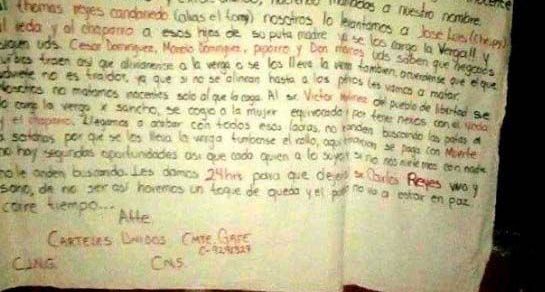 haciendo mandados a nuestro nombre
al themas reyes candanedo (alias el tomy) nosotros lo levantamos a Jose Luis (Chepu)
el seda y al chaparro a esos hijos de su puta madre ya se los cargo la Verga!! y
siguen uds. Cesar Dominguez, Moncho Dominguez, piporro y Don marcos uds saben que negocios
traen asi que alivianense a la verga o se los lleva la verga tambien, acuerdense que el que
no es traidor, ya que si no se alinean hasta a los perros les vamos a matar
Nosotros no matamos inocentes solo al que la caga. Al sr. Victor del pueblo de libertad se
lo cargo la verga x sancho, se cogio a la mujer equivocada y por tener nexos con el
y el chaparro. Llegamos a acabar con todos esas lacras, no anden buscando las patas al
a satanas por que se los lleva la verga tumbense el rollo, aqui la traicion se paga con Muerte
no hay segundas oportunidades asi que cada quien a lo suyo si no nos mete mos con nadie
no le anden buscando. Les damos 24hrs para que dejen al sr Carlos Reyes vivo y
sano, de no ser asi haremos un toque de queda y el pueblo no va a estar en paz
corre tiempo...
Atte.
CARTELES UNIDOS CMTE. GAFE
C-9291329
C.J.N.G. C.N.S.